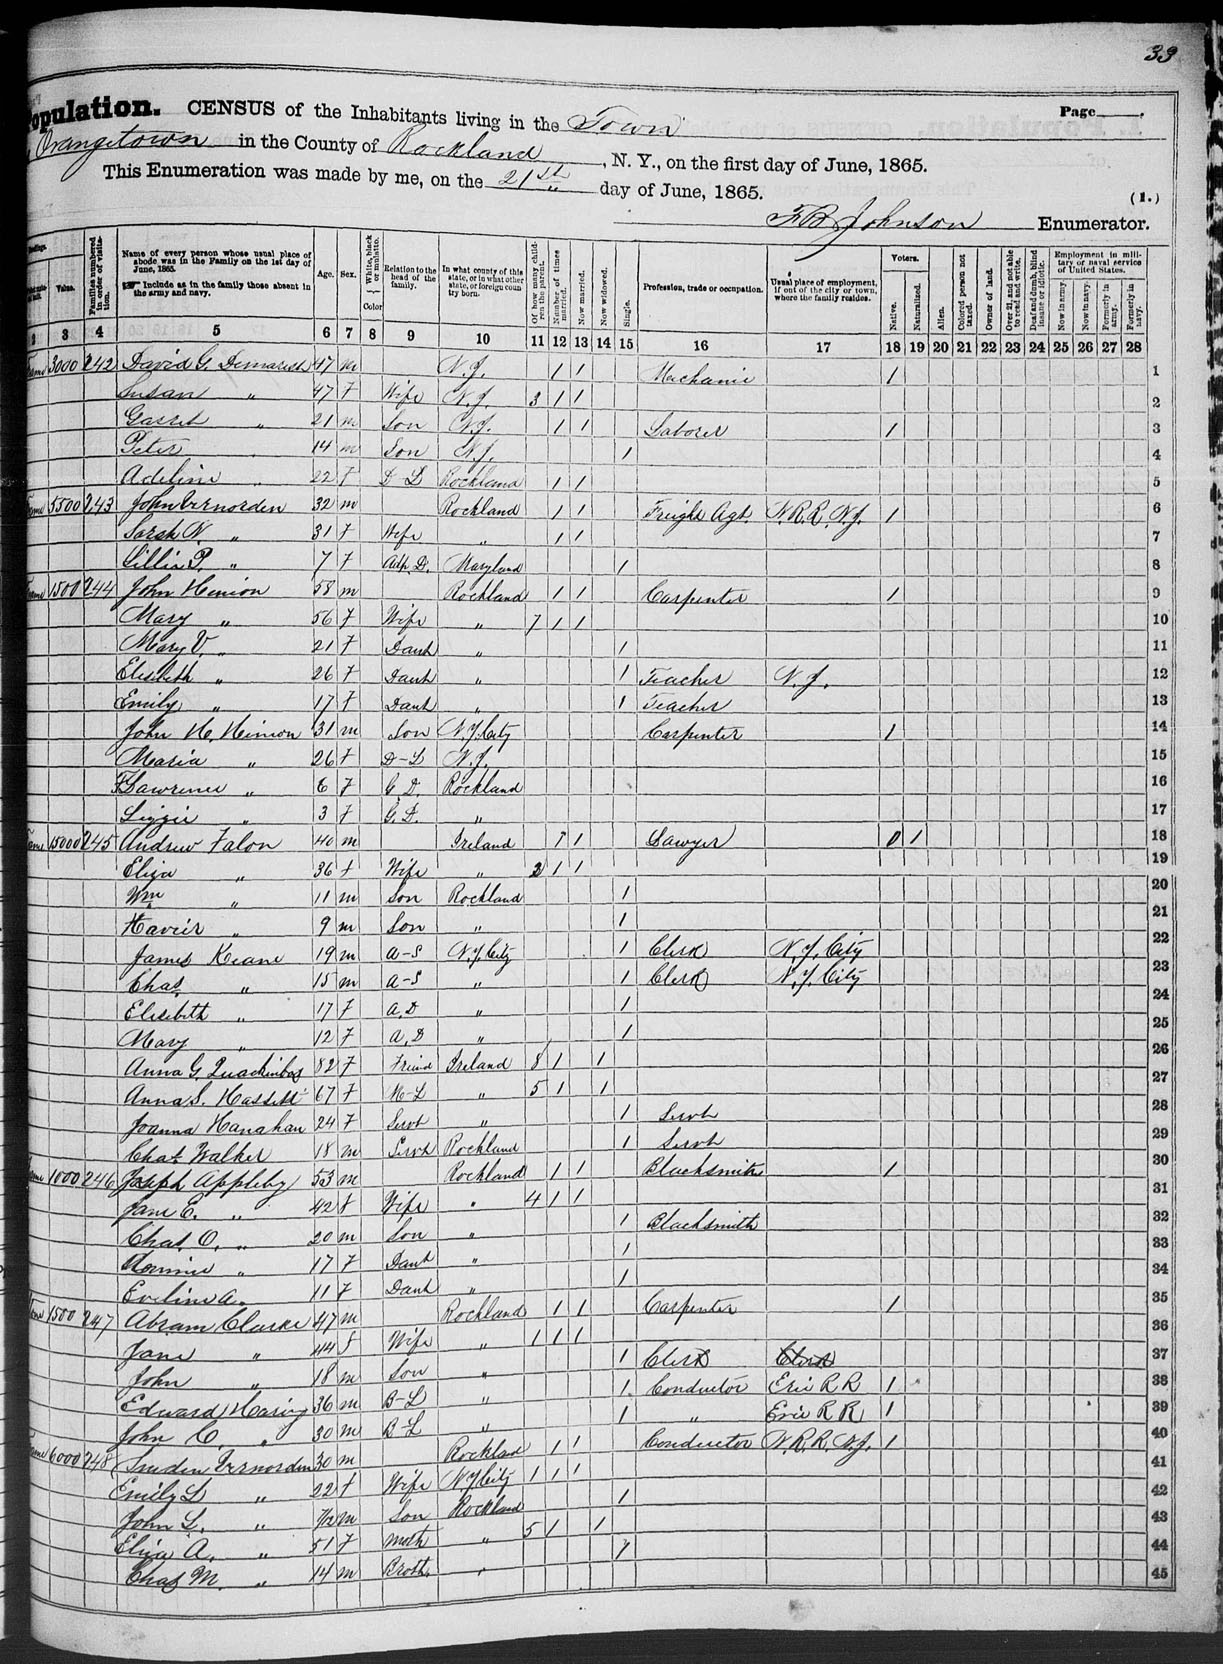 33
Population. CENSUS of the Inhabitants living in the Town Page
Orangetown in the County of Rockland, N. Y., on the first day of June, 1865.
This Enumeration was made by me, on the 21st day of June, 1865.
(1.)
F B Johnson Enumerator.
Value. Families numbered in order of visitation. Name of every person whose usual place of abode was in the Family on the 1st day of June, 1865. Include as in the family those absent in the army and navy. Age. Sex. White, black or mulatto. Color Relation to the head of the family. In what county of this state, or in what other state, or foreign country born. Of how many children the parent. Number of times married. Now married. Now widowed. Single. Profession, trade or occupation. Usual place of employment, if out of the city or town, where the family resides. Voters. Native. Naturalized. Alien. Colored person not taxed. Owner of land. Over 21, and not able to read and write. Deaf and dumb, blind insane or idiotic. Employment in military or naval service of United States. Now in army. Now in navy. Formerly in army. Formerly in navy.
2 3 4 5 6 7 8 9 10 11 12 13 14 15 16 17 18 19 20 21 22 23 24 25 26 27 28
3000 242 David G. Demarest 47 m N.J. 1 1 Mechanic 1 1
Susan " 47 F Wife N.J. 3 1 1 2
Garret " 21 m Son N.J. 1 1 Laborer 1 3
Peter 14 m Son N.J. 1 4
Adeline " 22 F D-L Rockland 1 1 5
5500 243 John Vernorden 32 m Rockland 1 1 Freight Agt. N.R.R. N.J. 1 6
Sarah N. " 31 F Wife " 1 1 7
Lillie P. " 7 F Adp. D. Maryland 1 8
1500 244 John Hinion 58 m Rockland 1 1 Carpenter 1 9
Mary " 56 F Wife " 7 1 1 10
Mary V. " 21 F Dauh " 1 11
Elesibeth " 26 F Dauh " 1 Teacher N.J. 12
Emily " 17 F Dauh " 1 Teacher 13
John H. Hinion 31 m Son N.Y. City Carpenter 1 14
Maria " 26 F D-L N.J. 15
Flawrence " 6 F G D. Rockland 16
Lizzie " 3 F G. D. " 17
15000 245 Andrew Falon 40 m Ireland 1 1 Lawyer 0 1 18
Eliza " 36 F Wife " 2 1 1 19
Wm " 11 m Son Rockland 1 20
Haveir " 9 m Son " 1 21
James Keane 19 m A-S N.Y. City 1 Clerk N.Y. City 22
Chas " 15 m A-S " 1 Clerk N.Y. City 23
Elesibeth " 17 F A.D " 1 24
Mary " 12 F A.D " 1 25
Anna G. Quackinbos 82 F Friend Ireland 8 1 1 26
Anna S. Hassett 67 F M-L " 5 1 1 27
Joanna Hanahan 24 F Servt " 1 Servt 28
Chas Walker 18 m Servt Rockland 1 Servt 29
1000 246 Joseph Appleby 53 m Rockland 1 1 Blacksmith 1 30
Jane E. " 42 F Wife " 4 1 1 31
Chas. O. " 20 m Son " 1 Blacksmith 32
" 17 F Dauh " 1 33
Eveline A. 11 F Dauh " 1 34
1500 247 Abram Clarke 47 m Rockland 1 1 Carpenter 1 35
Jane " 44 F Wife " 1 1 1 36
John " 18 m Son " 1 Clerk Clerk 37
Edward Haring 36 m B-L " 1 Conductor Erie R R 1 38
John C. " 30 m B-L " 1 " Erie R R 1 39
6000 248 Vernorden 30 m Rockland 1 1 Conductor N.R.R. N.J. 1 40
Emily L " 22 F Wife N.Y City 1 1 1 41
John L. " m Son Rockland 1 42
Eliza A. " 51 F Moth " 5 1 1 43
Chas M. " 14 m Broth. " 1 44
45